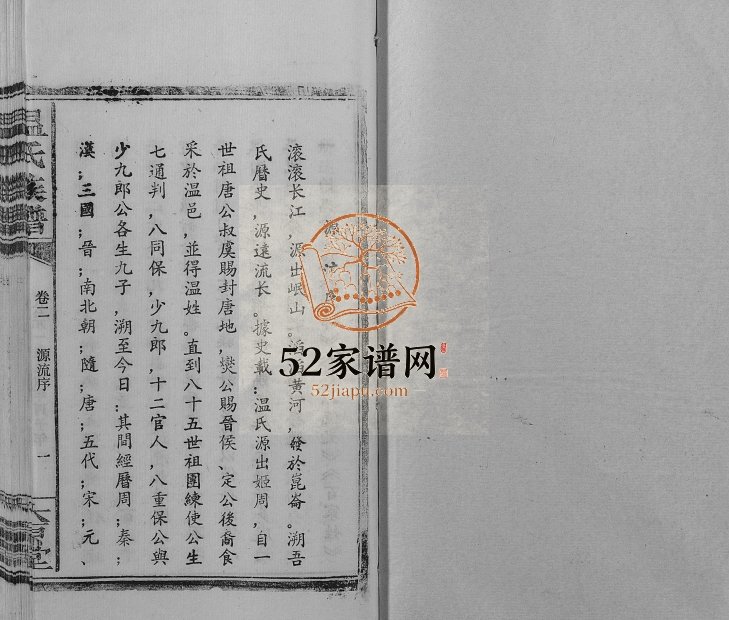 源流序
滚滚长江,源出岷山。滔滔黄河,發於崑崙。溯吾
氏曆史,源遠流长。據史載:温氏源出姬周,自一
世祖唐公叔虞賜封唐地,燮公賜晉侯、定公後裔食
采於温邑,並得温姓。直到八十五世祖團練使公生
七通判,八同保,少九郎,十二官人,八重保公與
少九郎公各生九子,溯至今日;其間經曆周;秦;
漢;三國;晉;南北朝;隨;唐;五代;宋;元、
温氏族譜
卷二
源流序
一
52家谱网
52jiapu.com